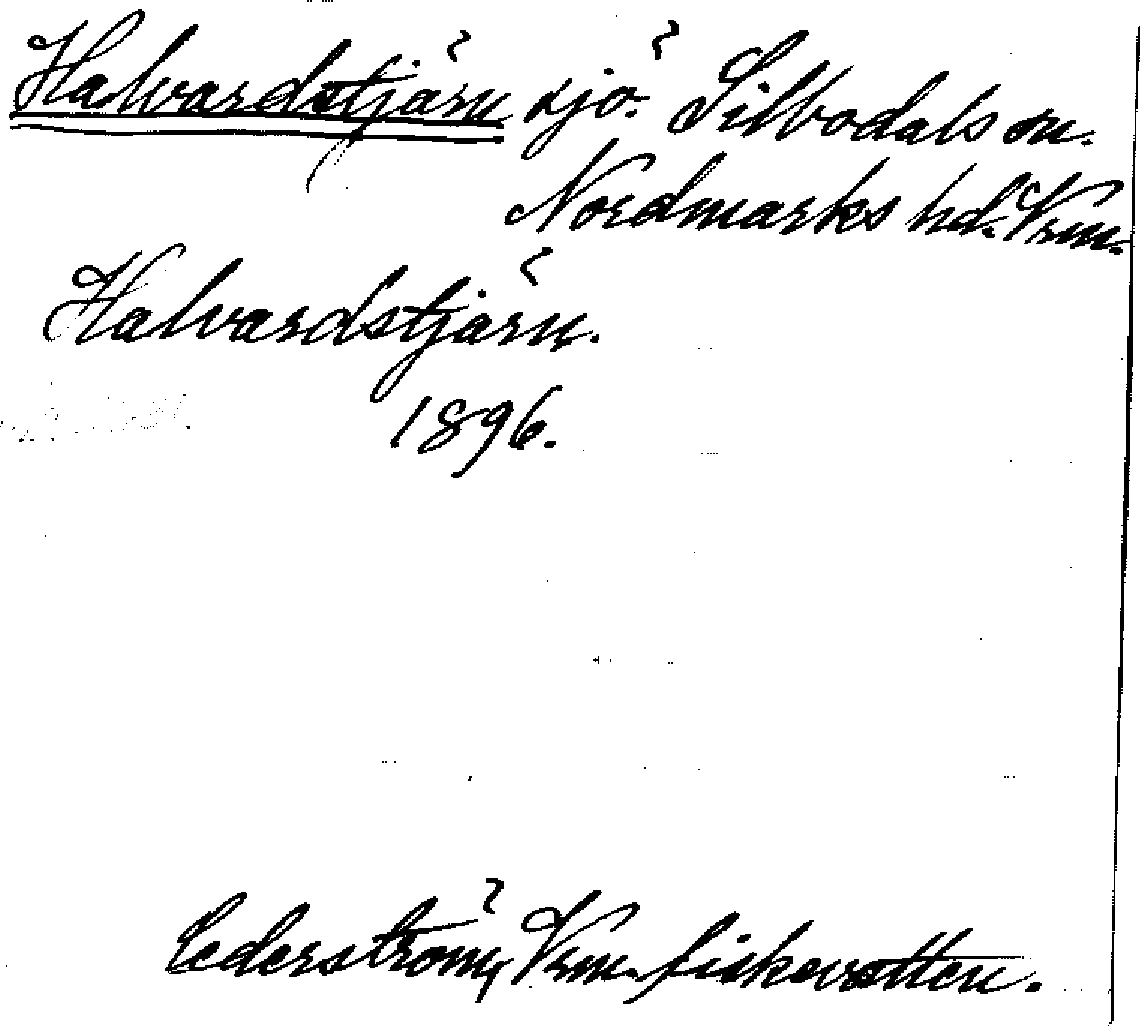 Halvardstjärn sjö. Silbodals sn.
Nordmarks hd. Vrm.
Halvardstjärn.
1896.
Cederström, Vrm. fiskevatten.